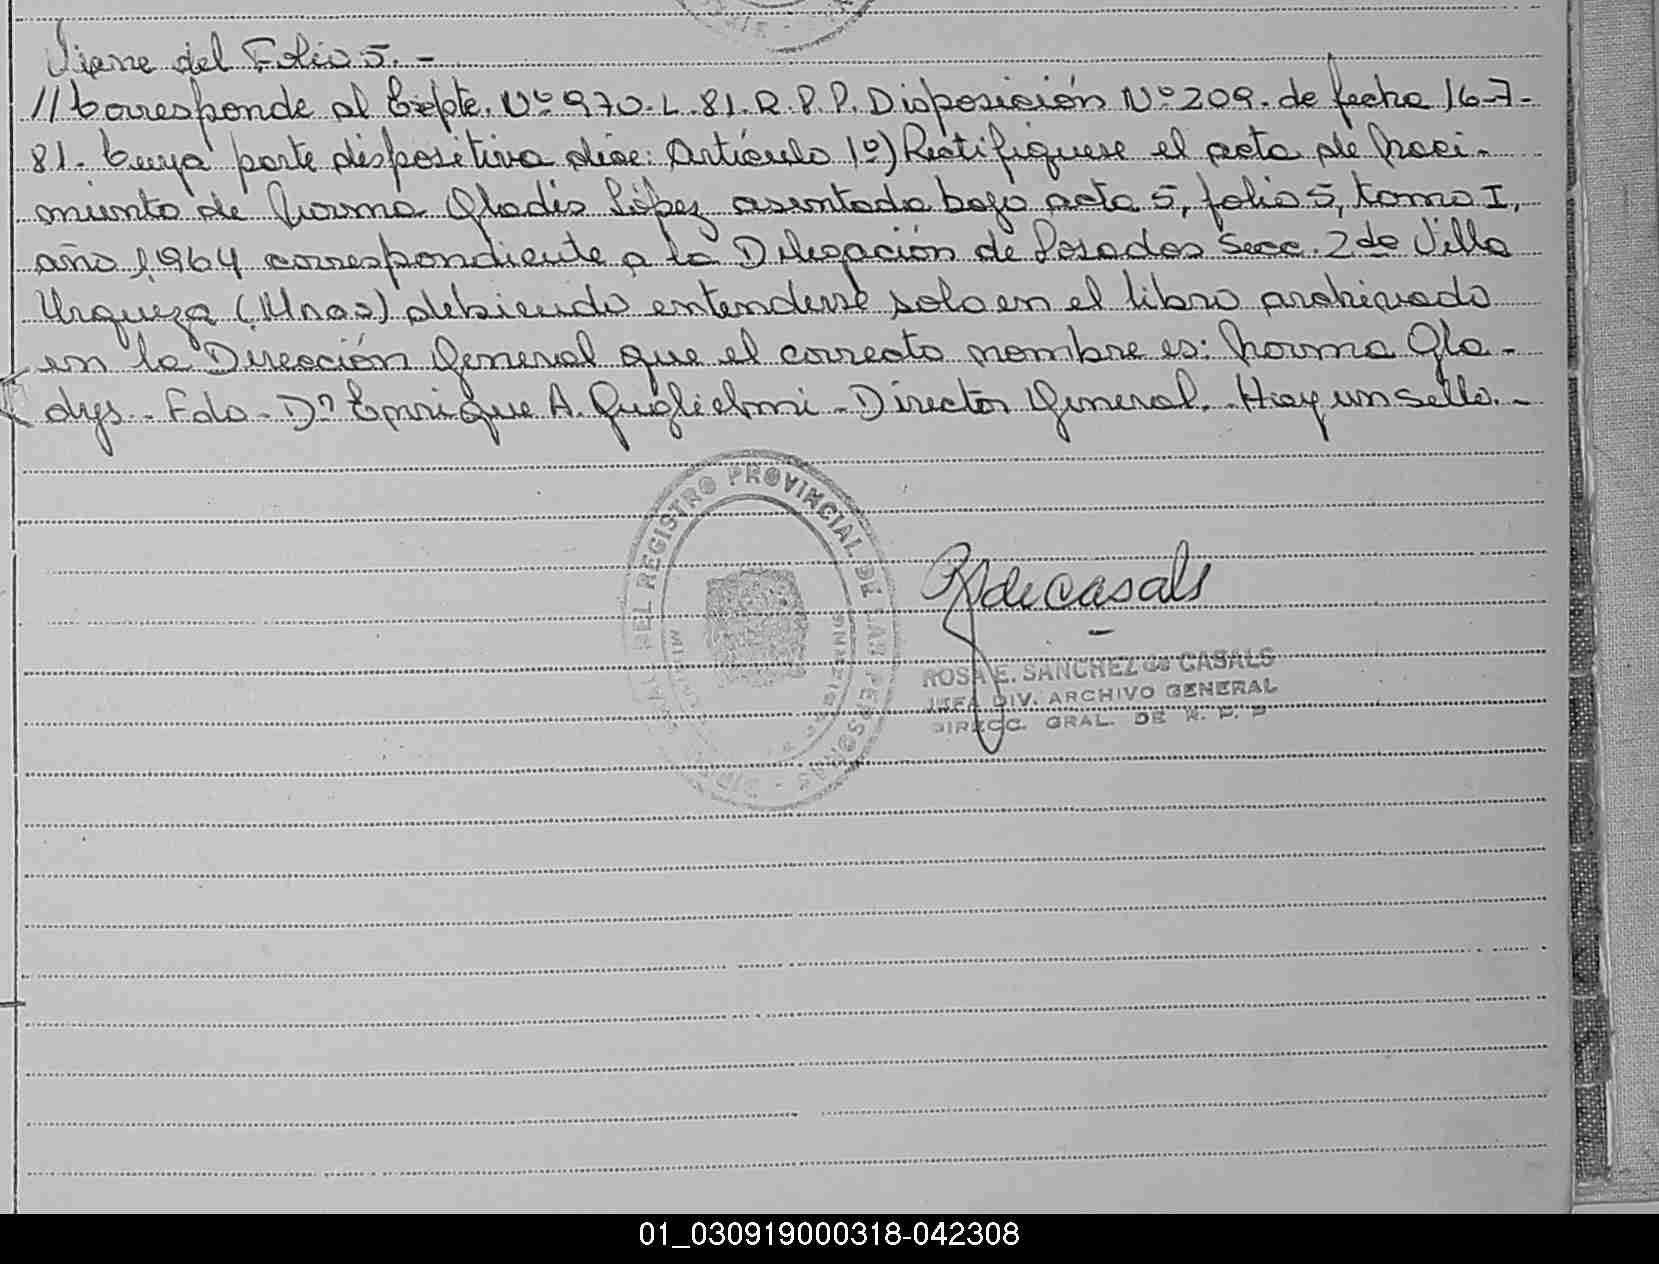 Viene del Folio 5. -
// Corresponde al Expte. Nº 970-L-81. R.P.P. Disposición Nº 209. de fecha 16-7-
81. Cuya parte dispositiva dice: Artículo 1º) Rectifíquese el acta de Naci-
miento de Norma Gladis López asentada bajo acta 5, folio 5, tomo I,
año 1964 correspondiente a la Delegación de Posadas Secc. 2da Villa
Urquiza (Mnes) debiendo entenderse solo en el libro archivado
en la Dirección General que el correcto nombre es: Norma Gla-
dys. - Fdo - Dn Enrique A. Guglielmi - Director General. - Hay un sello. -
REGISTRO PROVINCIAL DE LAS PERSONAS
R S de Casals
ROSA E. SANCHEZ de CASALS
JEFA DIV. ARCHIVO GENERAL
DIRECC. GRAL. DE R. P. P
01_030919000318-042308